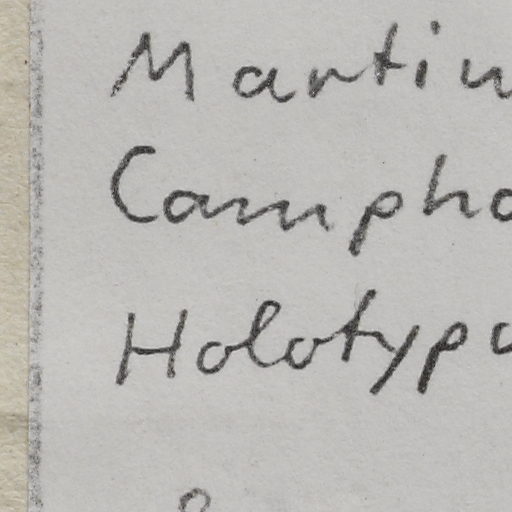 Martin
Campho
Holotypu